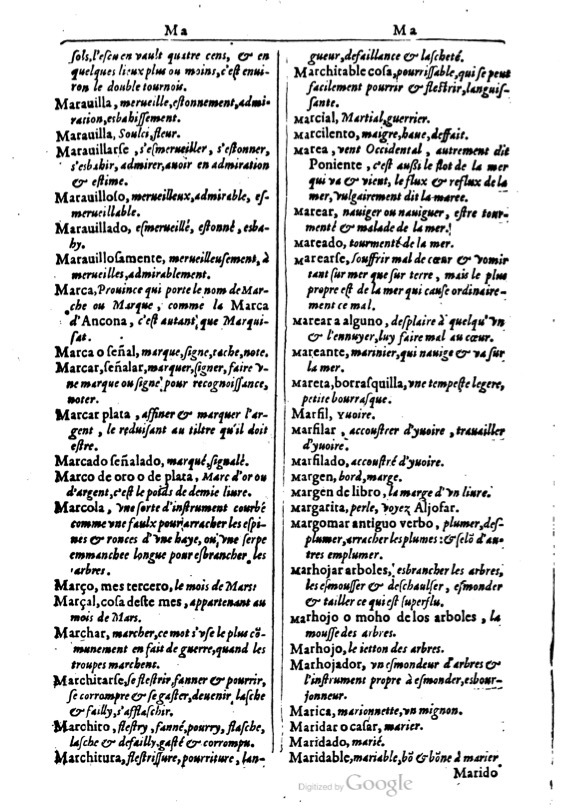 Ma
ſols, l'eſcu en vault quatre cens, & en
quelques lieux plus ou moins, c'eſt enui-
ron le double tournois.
Marauilla, merueille, eſtonnement, admi-
ration, esbahiſſement.
Marauilla, Soulci, fleur.
Marauillarſe, s'eſmerueiller, s'eſtonner,
s'esbahir, admirer, auoir en admiration
& eſtime.
Marauilloſo, merueilleux, admirable, eſ-
merueillable.
Marauillado, eſmerueillé, eſtonné, esba-
hy.
Marauilloſamente, merueilleuſement, à
merueilles, admirablement.
Marca, Prouince qui porte le nom de Mar-
che ou Marque, comme la Marca
d'Ancona, c'eſt autant que Marqui-
ſat.
Marca o ſeñal, marque, ſigne, tache, note.
Marcar, ſeñalar, marquer, ſigner, faire v-
ne marque ou ſigne pour recognoiſſance,
noter.
Marcar plata, affiner & marquer l'ar-
gent, le reduiſant au tiltre qu'il doit
eſtre.
Marcado ſeñalado, marqué, ſignalé.
Marco de oro o de plata, Marc d'or ou
d'argent, c'eſt le poids de demie liure.
Marcola, vne ſorte d'inſtrument courbé
comme vne faulx pour arracher les eſpi-
nes & ronces d'vne haye, ou, vne ſerpe
emmanchee longue pour esbrancher les
arbres.
Março, mes tercero, le mois de Mars:
Marçal, coſa deſte mes, appartenant au
mois de Mars.
Marchar, marcher, ce mot s'vſe le plus cõ-
munement en fait de guerre, quand les
troupes marchent.
Marchitarſe, ſe fleſtrir, fanner & pourrir,
ſe corrompre & ſe gaſter, deuenir laſche
& failly, s'afflaſchir.
Marchito, fleſtry, fanné, pourry, flaſche,
laſche & defailly, gaſté & corrompu.
Marchitura, fleſtriſſure, pourriture, lan-
Ma
gueur, defaillance & laſcheté.
Marchitable coſa, pourriſſable, qui ſe peut
facilement pourrir & fleſtrir, languiſ-
ſante.
Marcial, Martial, guerrier.
Marcilento, maigre, haue, deffait.
Marea, vent Occidental, autrement dit
Poniente, c'eſt auſſi le flot de la mer
qui va & vient, le flux & reflux de la
mer, vulgairement dit la maree.
Marear, nauiger ou nauiguer, eſtre tour-
menté & malade de la mer.
Mareado, tourmenté de la mer.
Marearſe, ſouffrir mal de cœur & vomir
tant ſur mer que ſur terre, mais le plus
propre eſt de la mer qui cauſe ordinaire-
ment ce mal.
Marear a alguno, deſplaire à quelqu'vn
& l'ennuyer, luy faire mal au cœur.
Mareante, marinier, qui nauige & va ſur
la mer.
Mareta, borraſquilla, vne tempeſte legere,
petite bourraſque.
Marfil, yuoire.
Marfilar, accouſtrer d'yuoire, trauailler
d'yuoire.
Marfilado, accouſtré d'yuoire.
Margen, bord, marge.
Margen de libro, la marge d'vn liure.
Margarita, perle, voyez Aljofar.
Margomar antiguo verbo, plumer, deſ-
plumer, arracher les plumes: & ſelõ d'au-
tres emplumer.
Marhojar arboles, esbrancher les arbres,
les eſmouſſer & deſchauſſer, eſmonder
& tailler ce qui eſt ſuperflu.
Marhojo o moho de los arboles, la
mouſſe des arbres.
Marhojo, le ietton des arbres.
Marhojador, vn eſmondeur d'arbres &
l'inſtrument propre à eſmonder, esbour-
jonneur.
Marica, marionnette, vn mignon.
Maridar o caſar, marier.
Maridado, marié.
Maridable, mariable, bõ & bõne à marier
Marido
Digitized by Google